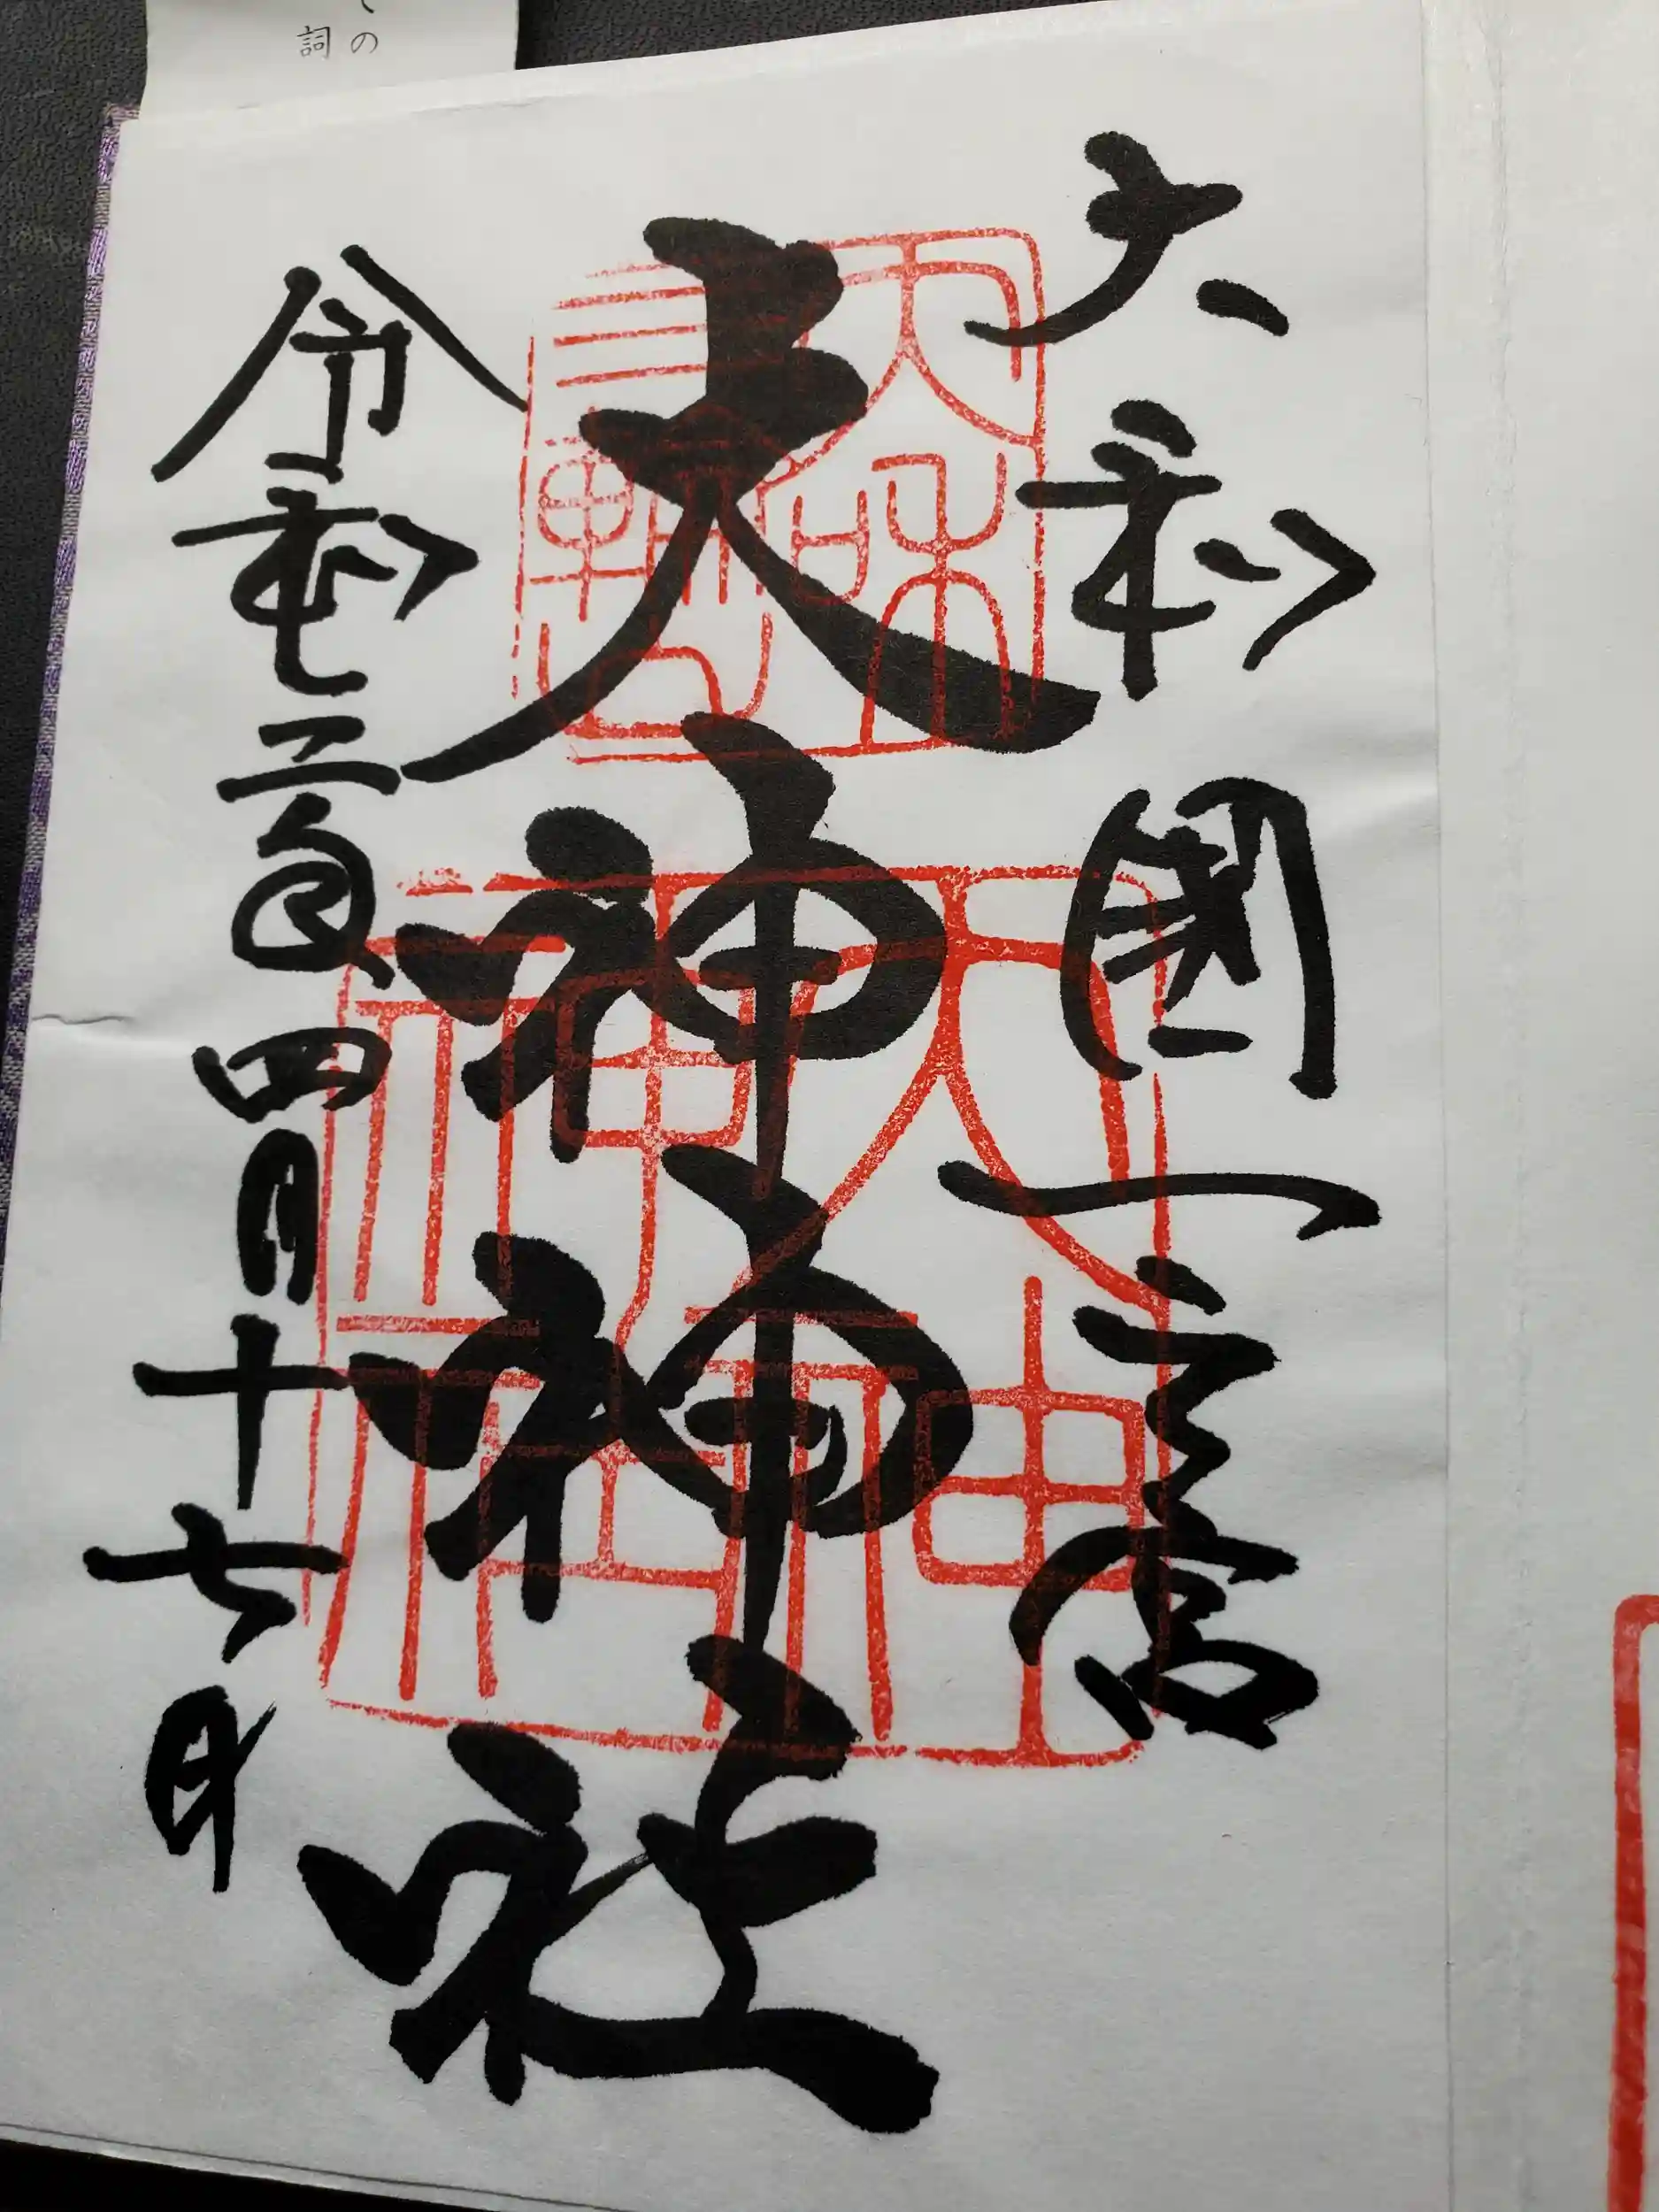 の
詞
大和國一之宮
大神神社
大神神社
令和
年四月十七日